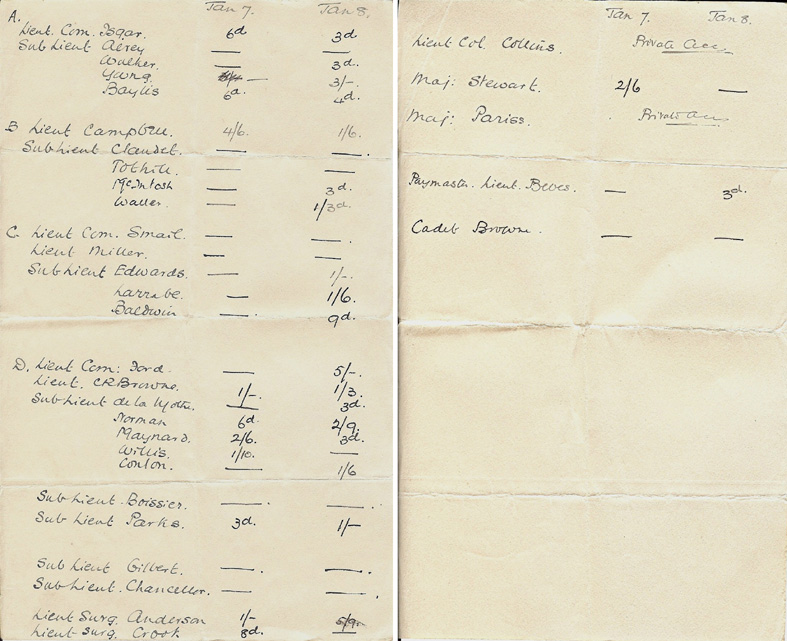 A. Jan 7. Jan 8.
Lieut. Com. Isgar. 6d 3d.
Sub Lieut Airey — —
Walker. — 3d.
Yung. — 3/-.
Baylis 6d. 4d.
B Lieut Campbell. 4/6. 1/6.
Sub Lieut Claudet. — —.
Tothill. — —
McIntosh — 3d.
Waller. — 1/3d.
C. Lieut Com. Smail. — —.
Lieut Miller. — —
Sub Lieut Edwards. — 1/-.
Larrabe. — 1/6.
Baldwin —. 9d.
D. Lieut Com: Ford. — 5/-.
Lieut. CR Browne. 1/-. 1/3.
Sub Lieut de la Mothe. — 3d.
Norman 6d. 2/9.
Maynard. 2/6. 3d.
Willis. 1/10. —
Conlon. — 1/6
Sub Lieut. Boissier. —. —.
Sub Lieut Parks. 3d. 1/-
Sub Lieut Gilbert. —. —.
Sub Lieut. Chancellor. — —.
Lieut Surg. Anderson 1/- 5/9.
Lieut Surg. Crook 8d. —
Jan 7. Jan 8.
Lieut Col. Collins. Private Acc.
Maj: Stewart. 2/6 —
Maj: Pariss. Private Acc
Paymaster. Lieut. Beves. — 3d.
Cadet Browne. — —